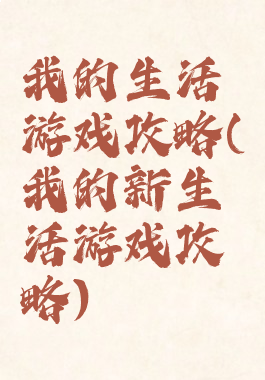 我的生活
游戏攻略(
我的新生
活游戏攻
略)